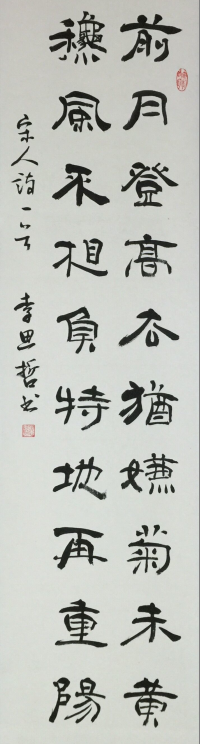 前月登高去猶嫌菊未黄
穐風不相負特地再重陽
宋人詩一首 李思哲书